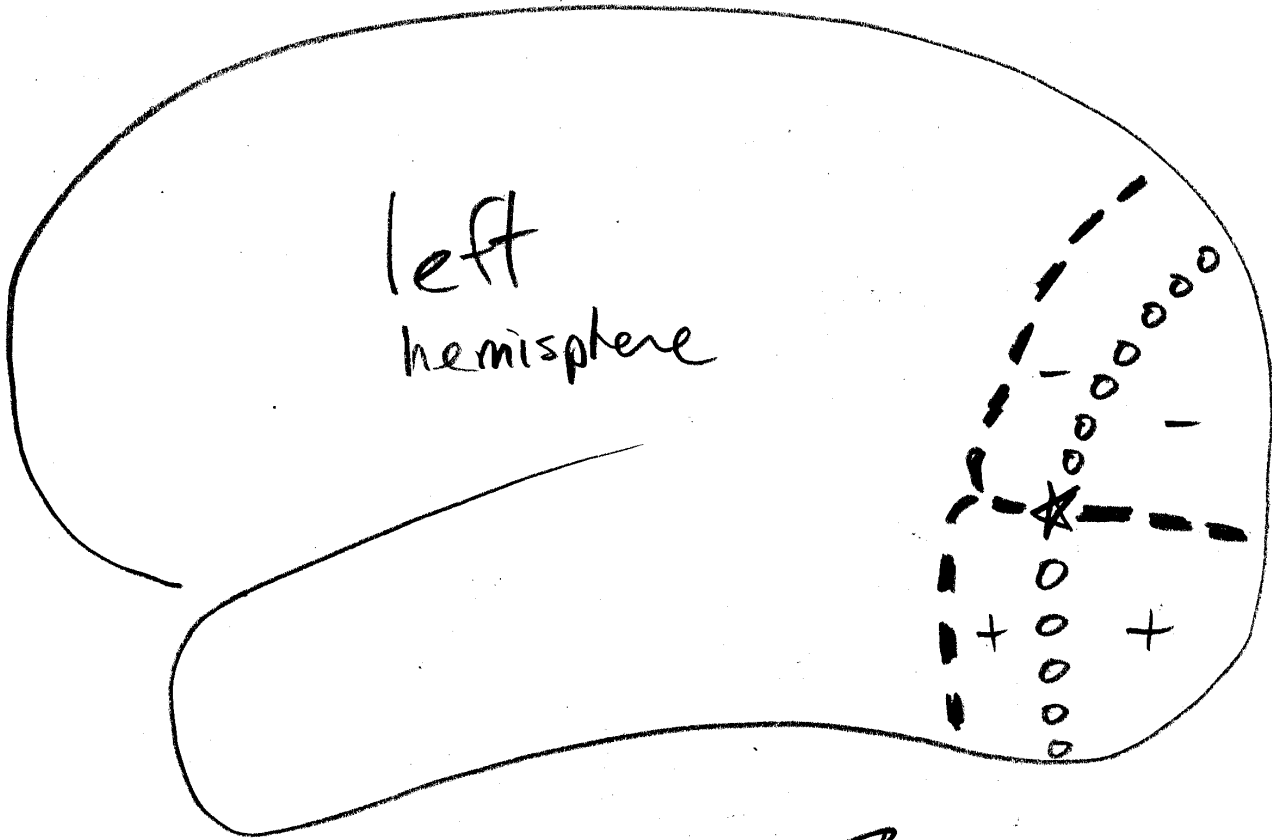 left
hemisphere
-
-
+ +